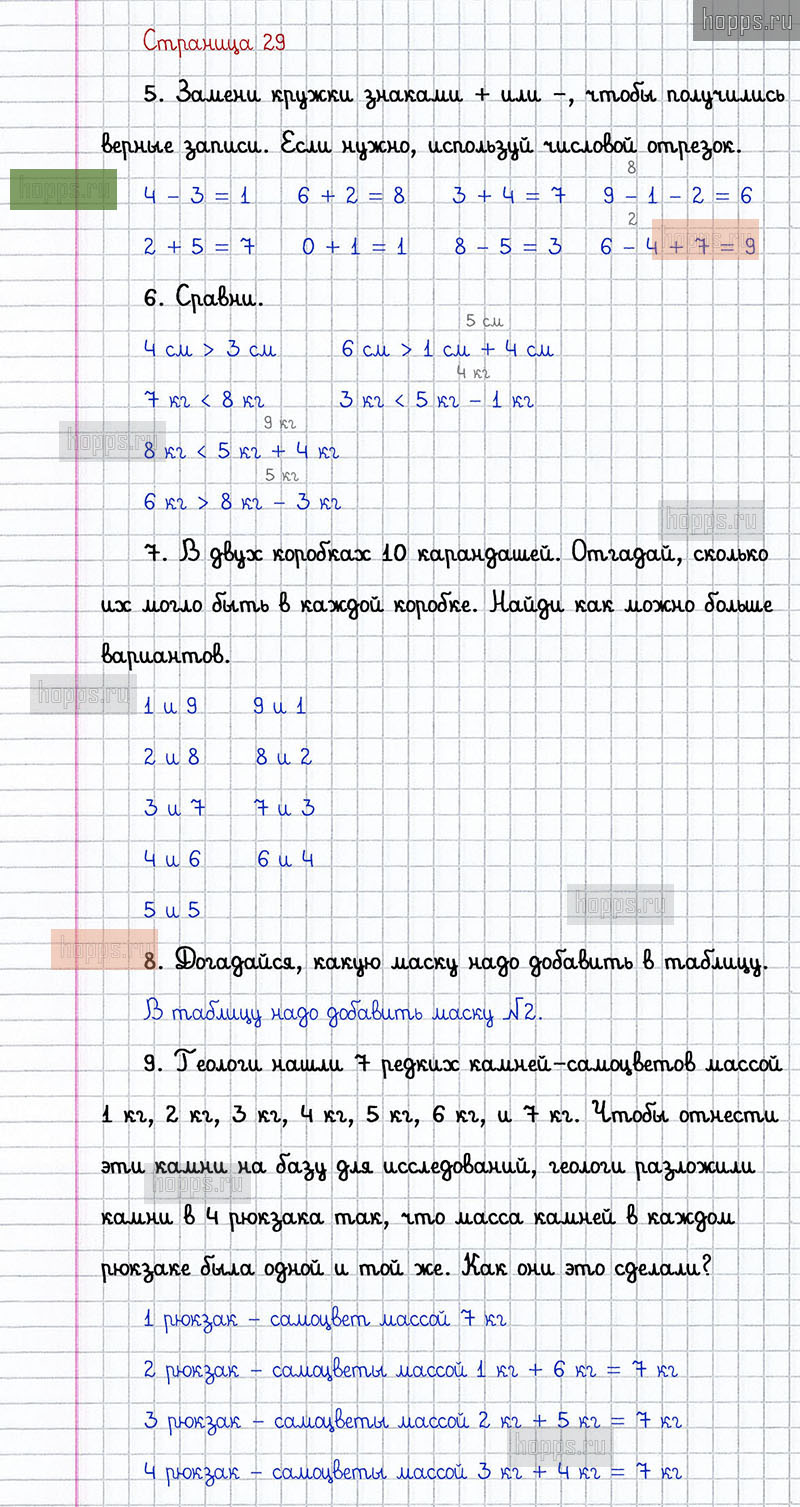 hopps.ru
Страница 29
5. Замени кружки знаками + или -, чтобы получились
верные записи. Если нужно, используй числовой отрезок.
8
hopps.ru
4 - 3 = 1 6 + 2 = 8 3 + 4 = 7 9 - 1 - 2 = 6
2
hopps.ru
2 + 5 = 7 0 + 1 = 1 8 - 5 = 3 6 - 4 + 7 = 9
6. Сравни.
5 см
4 см > 3 см 6 см > 1 см + 4 см
4 кг
7 кг < 8 кг 3 кг < 5 кг - 1 кг
9 кг
hopps.ru
8 кг < 5 кг + 4 кг
5 кг
6 кг > 8 кг - 3 кг
hopps.ru
7. В двух коробках 10 карандашей. Отгадай, сколько
их могло быть в каждой коробке. Найди как можно больше
вариантов.
hopps.ru
1 и 9 9 и 1
2 и 8 8 и 2
3 и 7 7 и 3
4 и 6 6 и 4
hopps.ru
5 и 5
hopps.ru
8. Догадайся, какую маску надо добавить в таблицу.
В таблицу надо добавить маску №2.
9. Геологи нашли 7 редких камней-самоцветов массой
1 кг, 2 кг, 3 кг, 4 кг, 5 кг, 6 кг, и 7 кг. Чтобы отнести
эти камни на базу для исследований, геологи разложили
hopps.ru
камни в 4 рюкзака так, что масса камней в каждом
рюкзаке была одной и той же. Как они это сделали?
1 рюкзак - самоцвет массой 7 кг
2 рюкзак - самоцветы массой 1 кг + 6 кг = 7 кг
3 рюкзак - самоцветы массой 2 кг + 5 кг = 7 кг
hopps.ru
4 рюкзак - самоцветы массой 3 кг + 4 кг = 7 кг